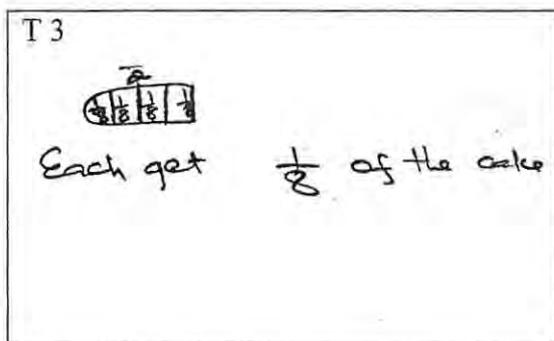 T 3
1/8 1/8 1/8 1/8
Each get 1/8 of the cake